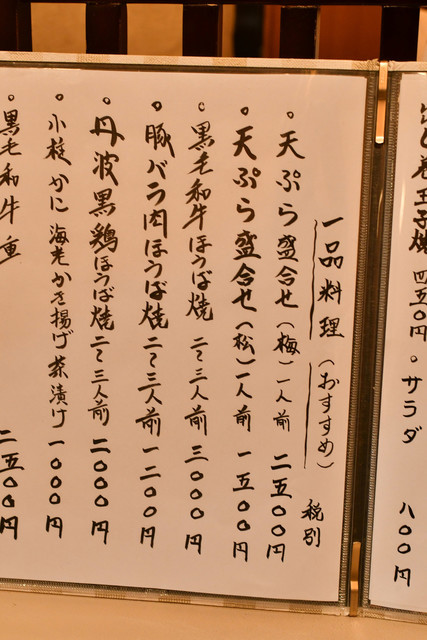 だし巻玉子焼 四五〇円 ・サラダ 八〇〇円
一品料理(おすすめ) 税別
。天ぷら盛合せ(梅)一人前 二五〇〇円
。天ぷら盛合せ(松)一人前 一五〇〇円
。黒毛和牛ほうば焼 二〜三人前 三〇〇〇円
。豚バラ肉ほうば焼 二〜三人前 一二〇〇円
。丹波黒鶏ほうば焼 二〜三人前 二〇〇〇円
。小桜かに海老かき揚げ茶漬け 一〇〇〇円
。黒毛和牛重 二五〇〇円